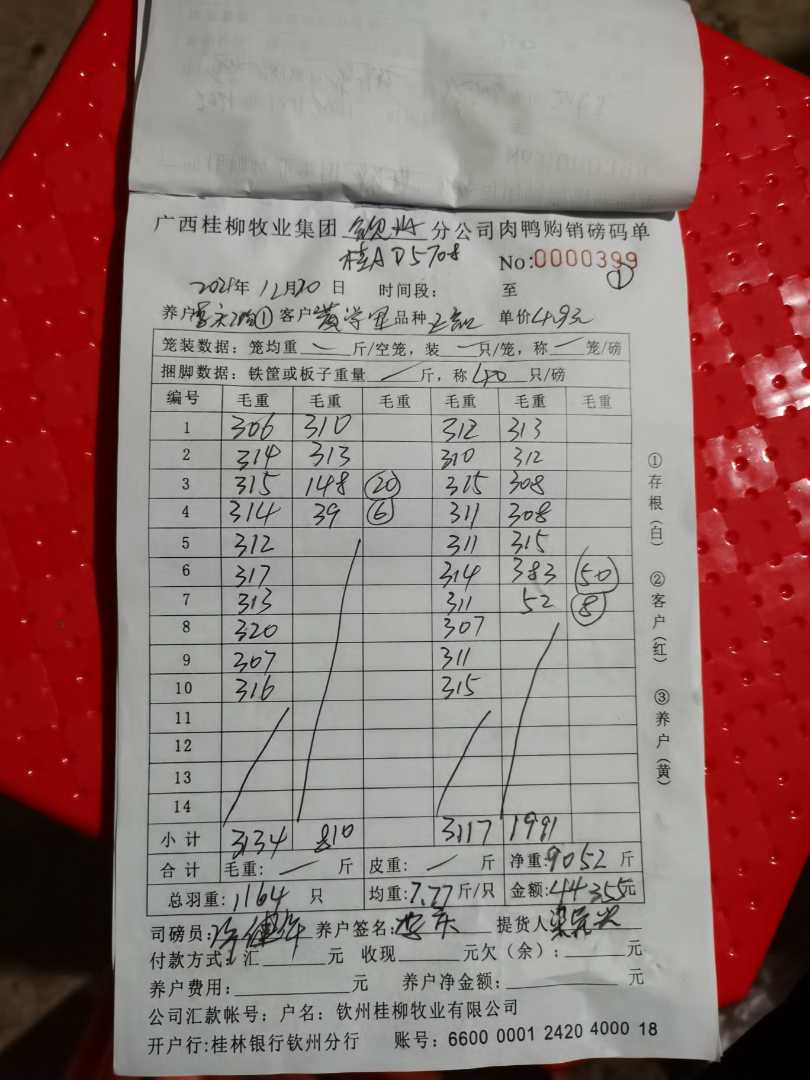 广西桂柳牧业集团 钦州 分公司肉鸭购销磅码单
桂AD5708 No:0000399
①
2021年12月20日 时间段: 至
养户 ① 客户 品种 单价4.9元
笼装数据:笼均重 斤/空笼,装 只/笼,称 笼/磅
捆脚数据:铁筐或板子重量 斤,称40只/磅
编号 毛重 毛重 毛重 毛重 毛重 毛重
1 306 310 312 313
2 314 313 310 312
3 315 148 20 315 308
4 314 39 6 311 308
5 312 311 315
6 317 314 383 50
7 313 311 52 8
8 320 307
9 307 311
10 316 315
11
12
13
14
小计 3134 810 3117 1991
合计 毛重: 斤 皮重: 斤 净重:9052斤
总羽重:1164只 均重:7.77斤/只 金额:44355元
司磅员: 养户签名: 提货人
付款方式:汇 元 收现 元欠(余): 元
养户费用: 元 养户净金额: 元
公司汇款帐号:户名:钦州桂柳牧业有限公司
开户行:桂林银行钦州分行 账号:6600 0001 2420 4000 18
①存根(白) ②客户(红) ③养户(黄)